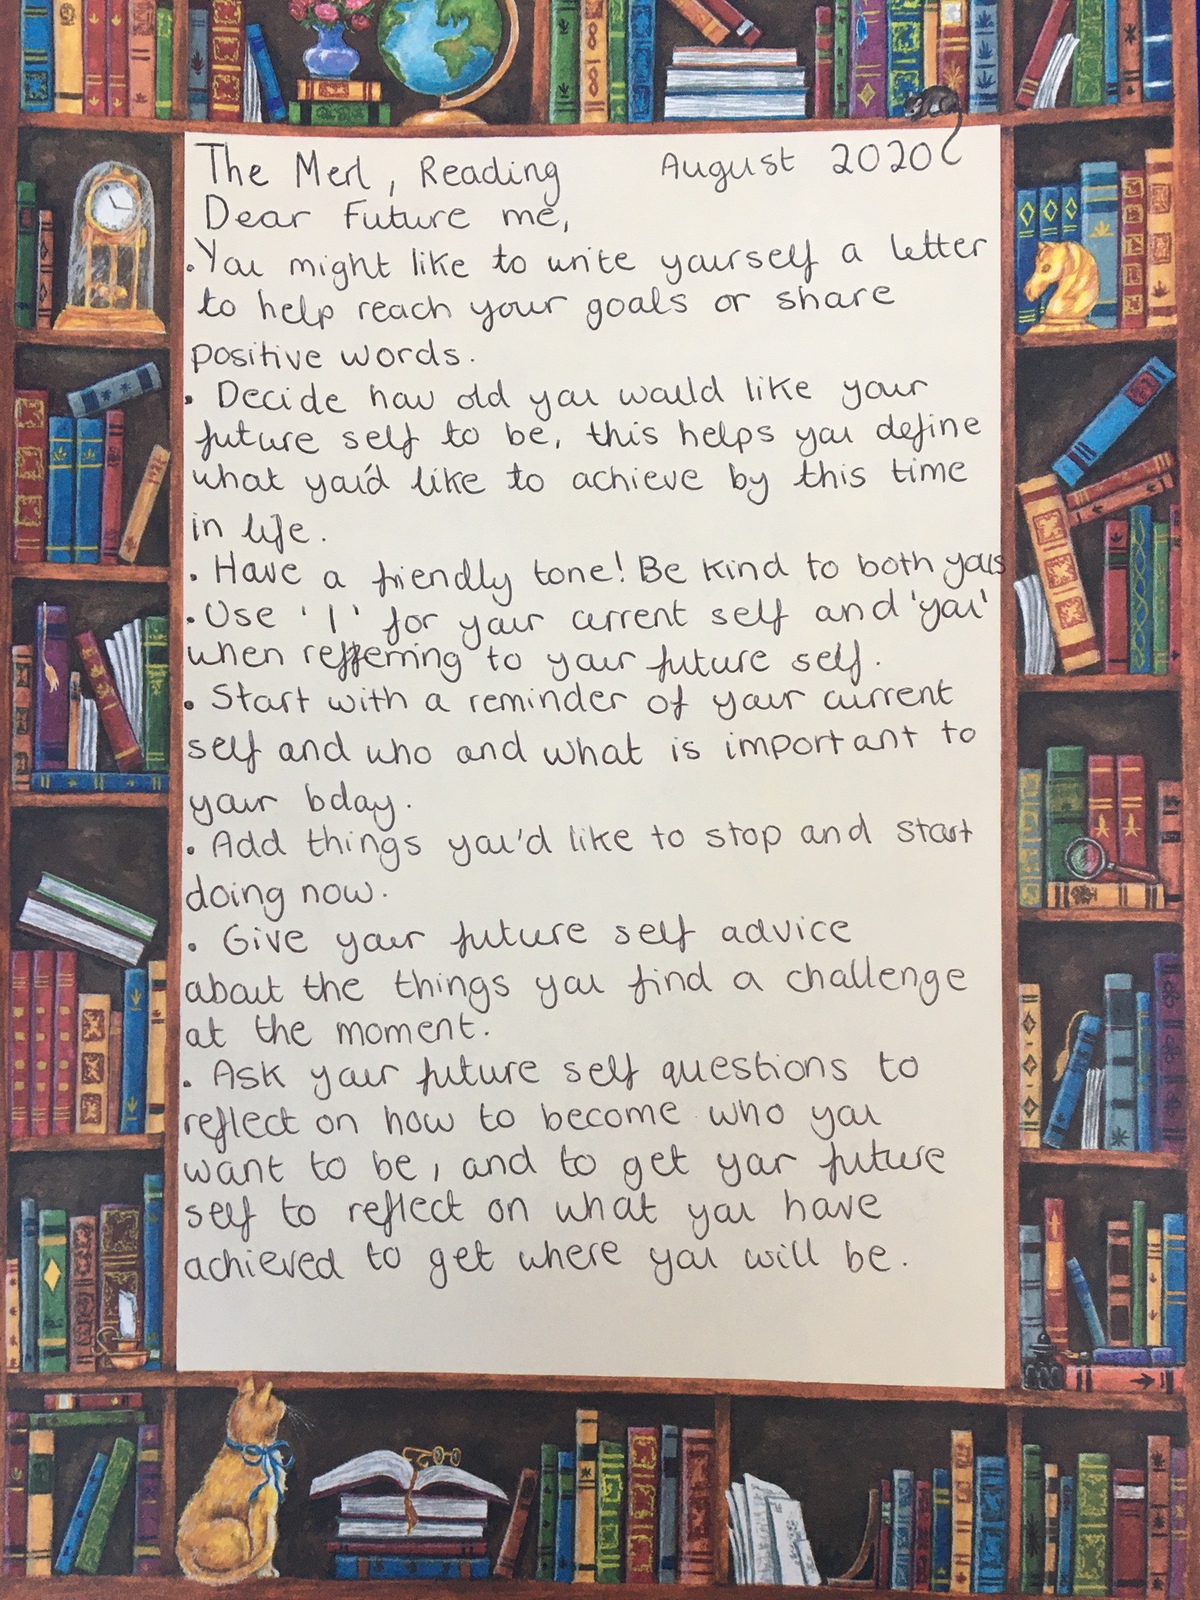 The Merl, Reading August 2020
Dear Future me,
• You might like to write yourself a letter
to help reach your goals or share
positive words.
• Decide how old you would like your
future self to be, this helps you define
what you'd like to achieve by this time
in life.
• Have a friendly tone! Be kind to both yous
• Use 'I' for your current self and 'you'
when refferring to your future self.
• Start with a reminder of your current
self and who and what is important to
your bday.
• Add things you'd like to stop and start
doing now.
• Give your future self advice
about the things you find a challenge
at the moment.
• Ask your future self questions to
reflect on how to become who you
want to be, and to get your future
self to reflect on what you have
achieved to get where you will be.